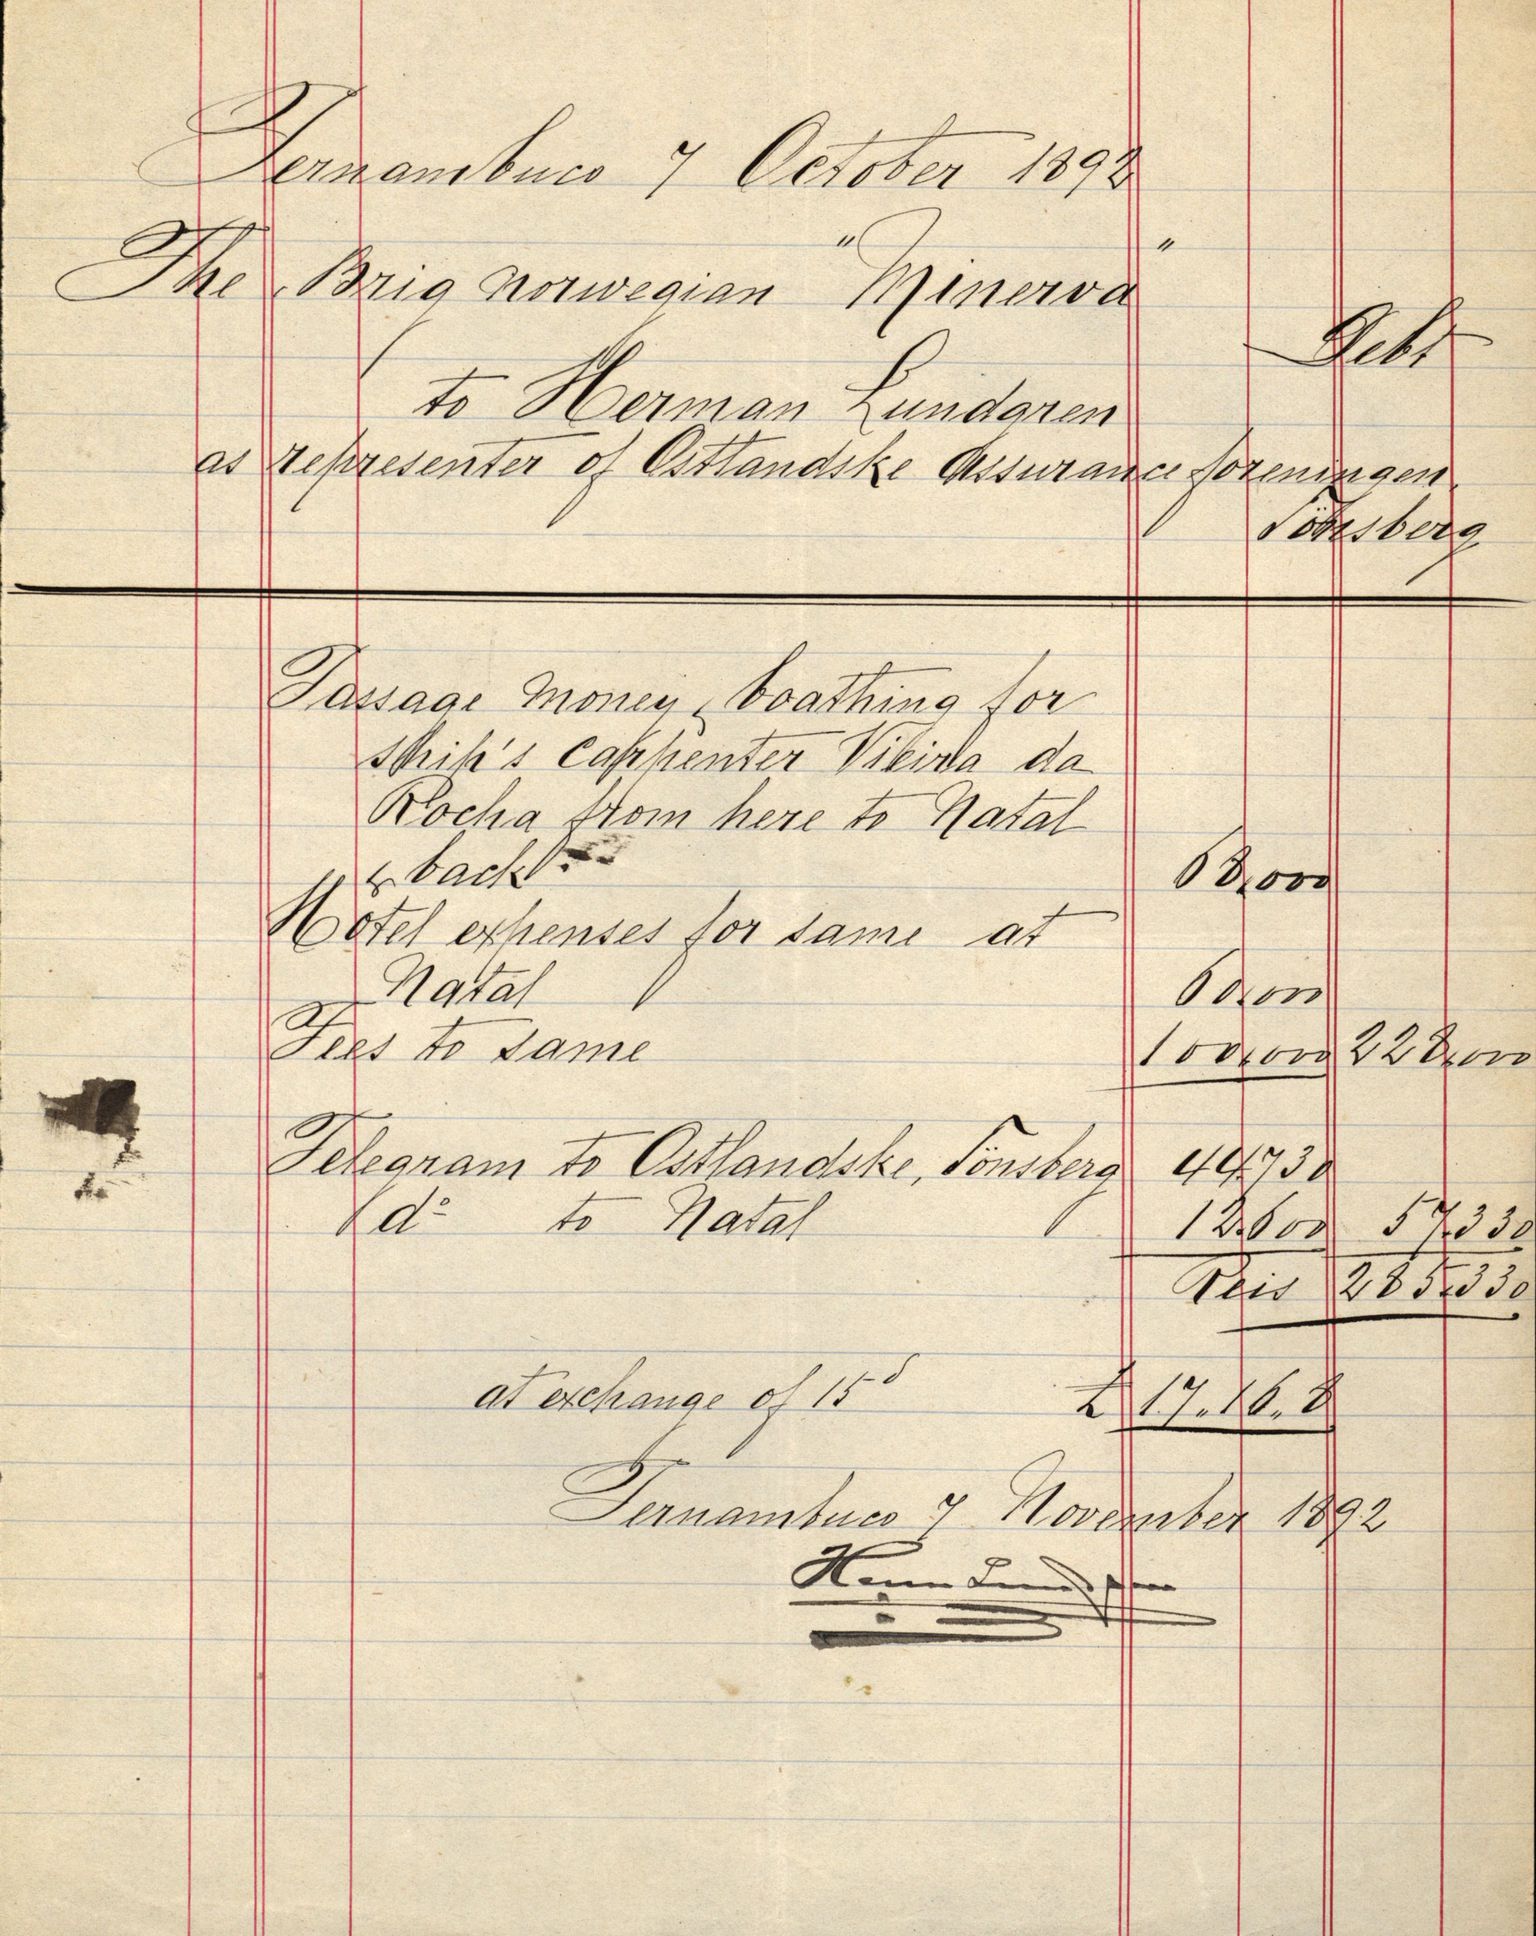 Pernambuco 7 October 1892
The Brig Norwegian "Minerva"
Debt
to Herman Lundgren
as representer of Ostlandske Assurance foreningen
Tönsberg
Passage Money & boathing for
ship's carpenter Vieira da
Rocha from here to Natal
& back 68,000
Hotel expenses for same at
Natal 60,000
Fees to same 100,000 228,000
Telegram to Ostlandske, Tönsberg 44,730
do to Natal 12,600 57,330
Reis 285,330
at exchange of 15d £ 17.16.8
Pernambuco 7 November 1892
Herm Lundgren